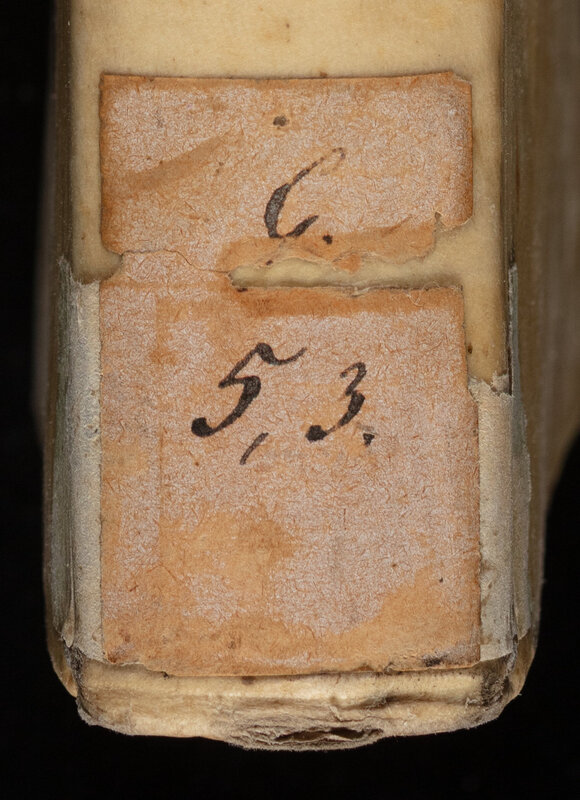 C.
5, 3.